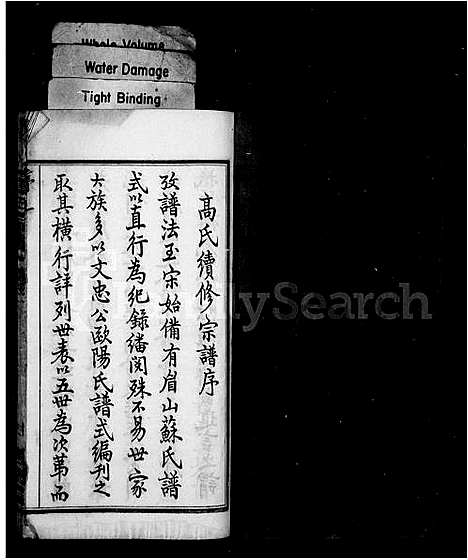 Whole Volume
Water Damage
Tight Binding
高氏續修宗譜序
攷譜法至宋始備有眉山蘇氏譜
式以直行為紀錄繙閱殊不易世家
大族多以文忠公歐陽氏譜式編刊之
取其橫行詳列世表以五世為次第而
FamilySearch